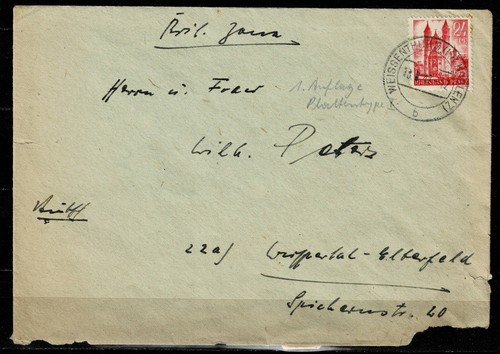 Brit. Zone
24
WEISSENTHURM (KR KOBLENZ)
b
RHEINLAND-PFALZ
Herrn u. Frau
1. Auflage
Plattentype
Wilh. Peters
22a) Wuppertal-Elberfeld
Spichernstr. 20